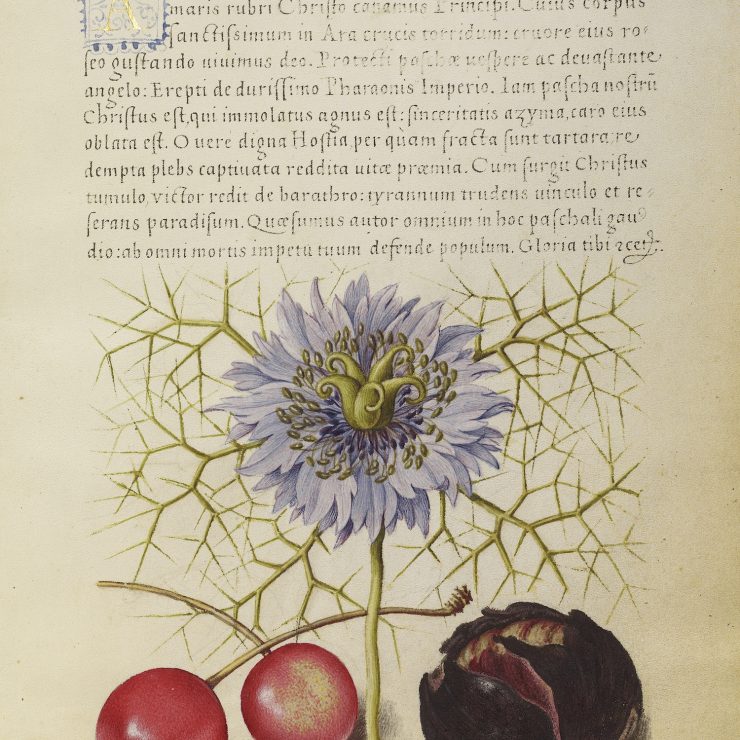 A maris rubri Christo canamus Principi. Cuius corpus
sanctissimum in Ara crucis torridum: cruore eius ro-
seo gustando uiuimus deo. Protecti paschæ uespere ac deuastante
angelo: Erepti de durissimo Pharaonis Imperio. Iam pascha nostrũ
Christus est, qui immolatus agnus est: sinceritatis azyma, caro eius
oblata est. O uere digna Hostia, per quàm fracta sunt tartara, re
dempta plebs captiuata reddita uitæ præmia. Cum surgit Christus
tumulo, victor redit de barathro: tyrannum trudens uinculo et re-
serans paradisum. Quæsumus autor omnium in hoc paschali gau
dio: ab omni mortis impetu tuum defende populum. Gloria tibi &cet.